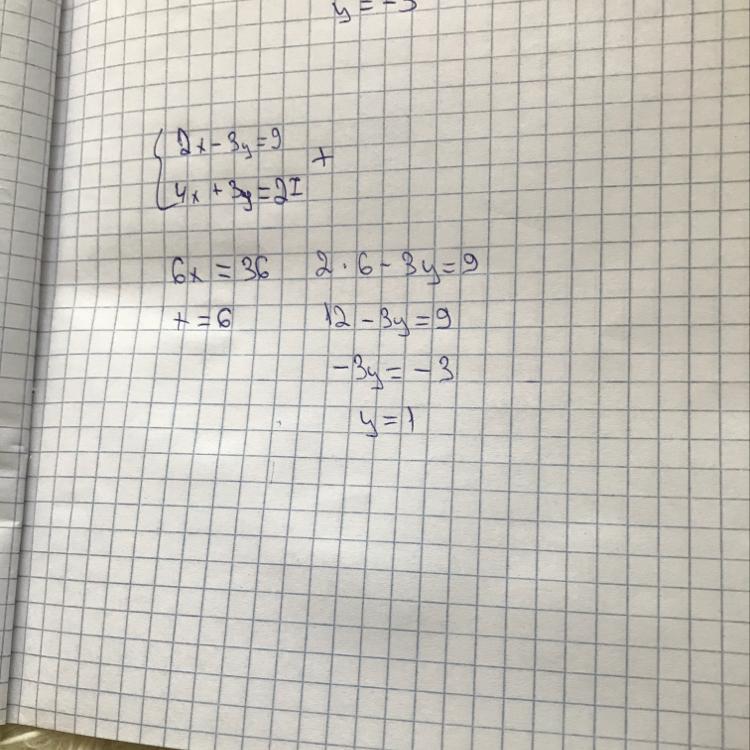 y = -3
2x - 3y = 9
+
4x + 3y = 2I
6x = 36
2 · 6 - 3y = 9
+ = 6
12 - 3y = 9
-3y = -3
y = 1